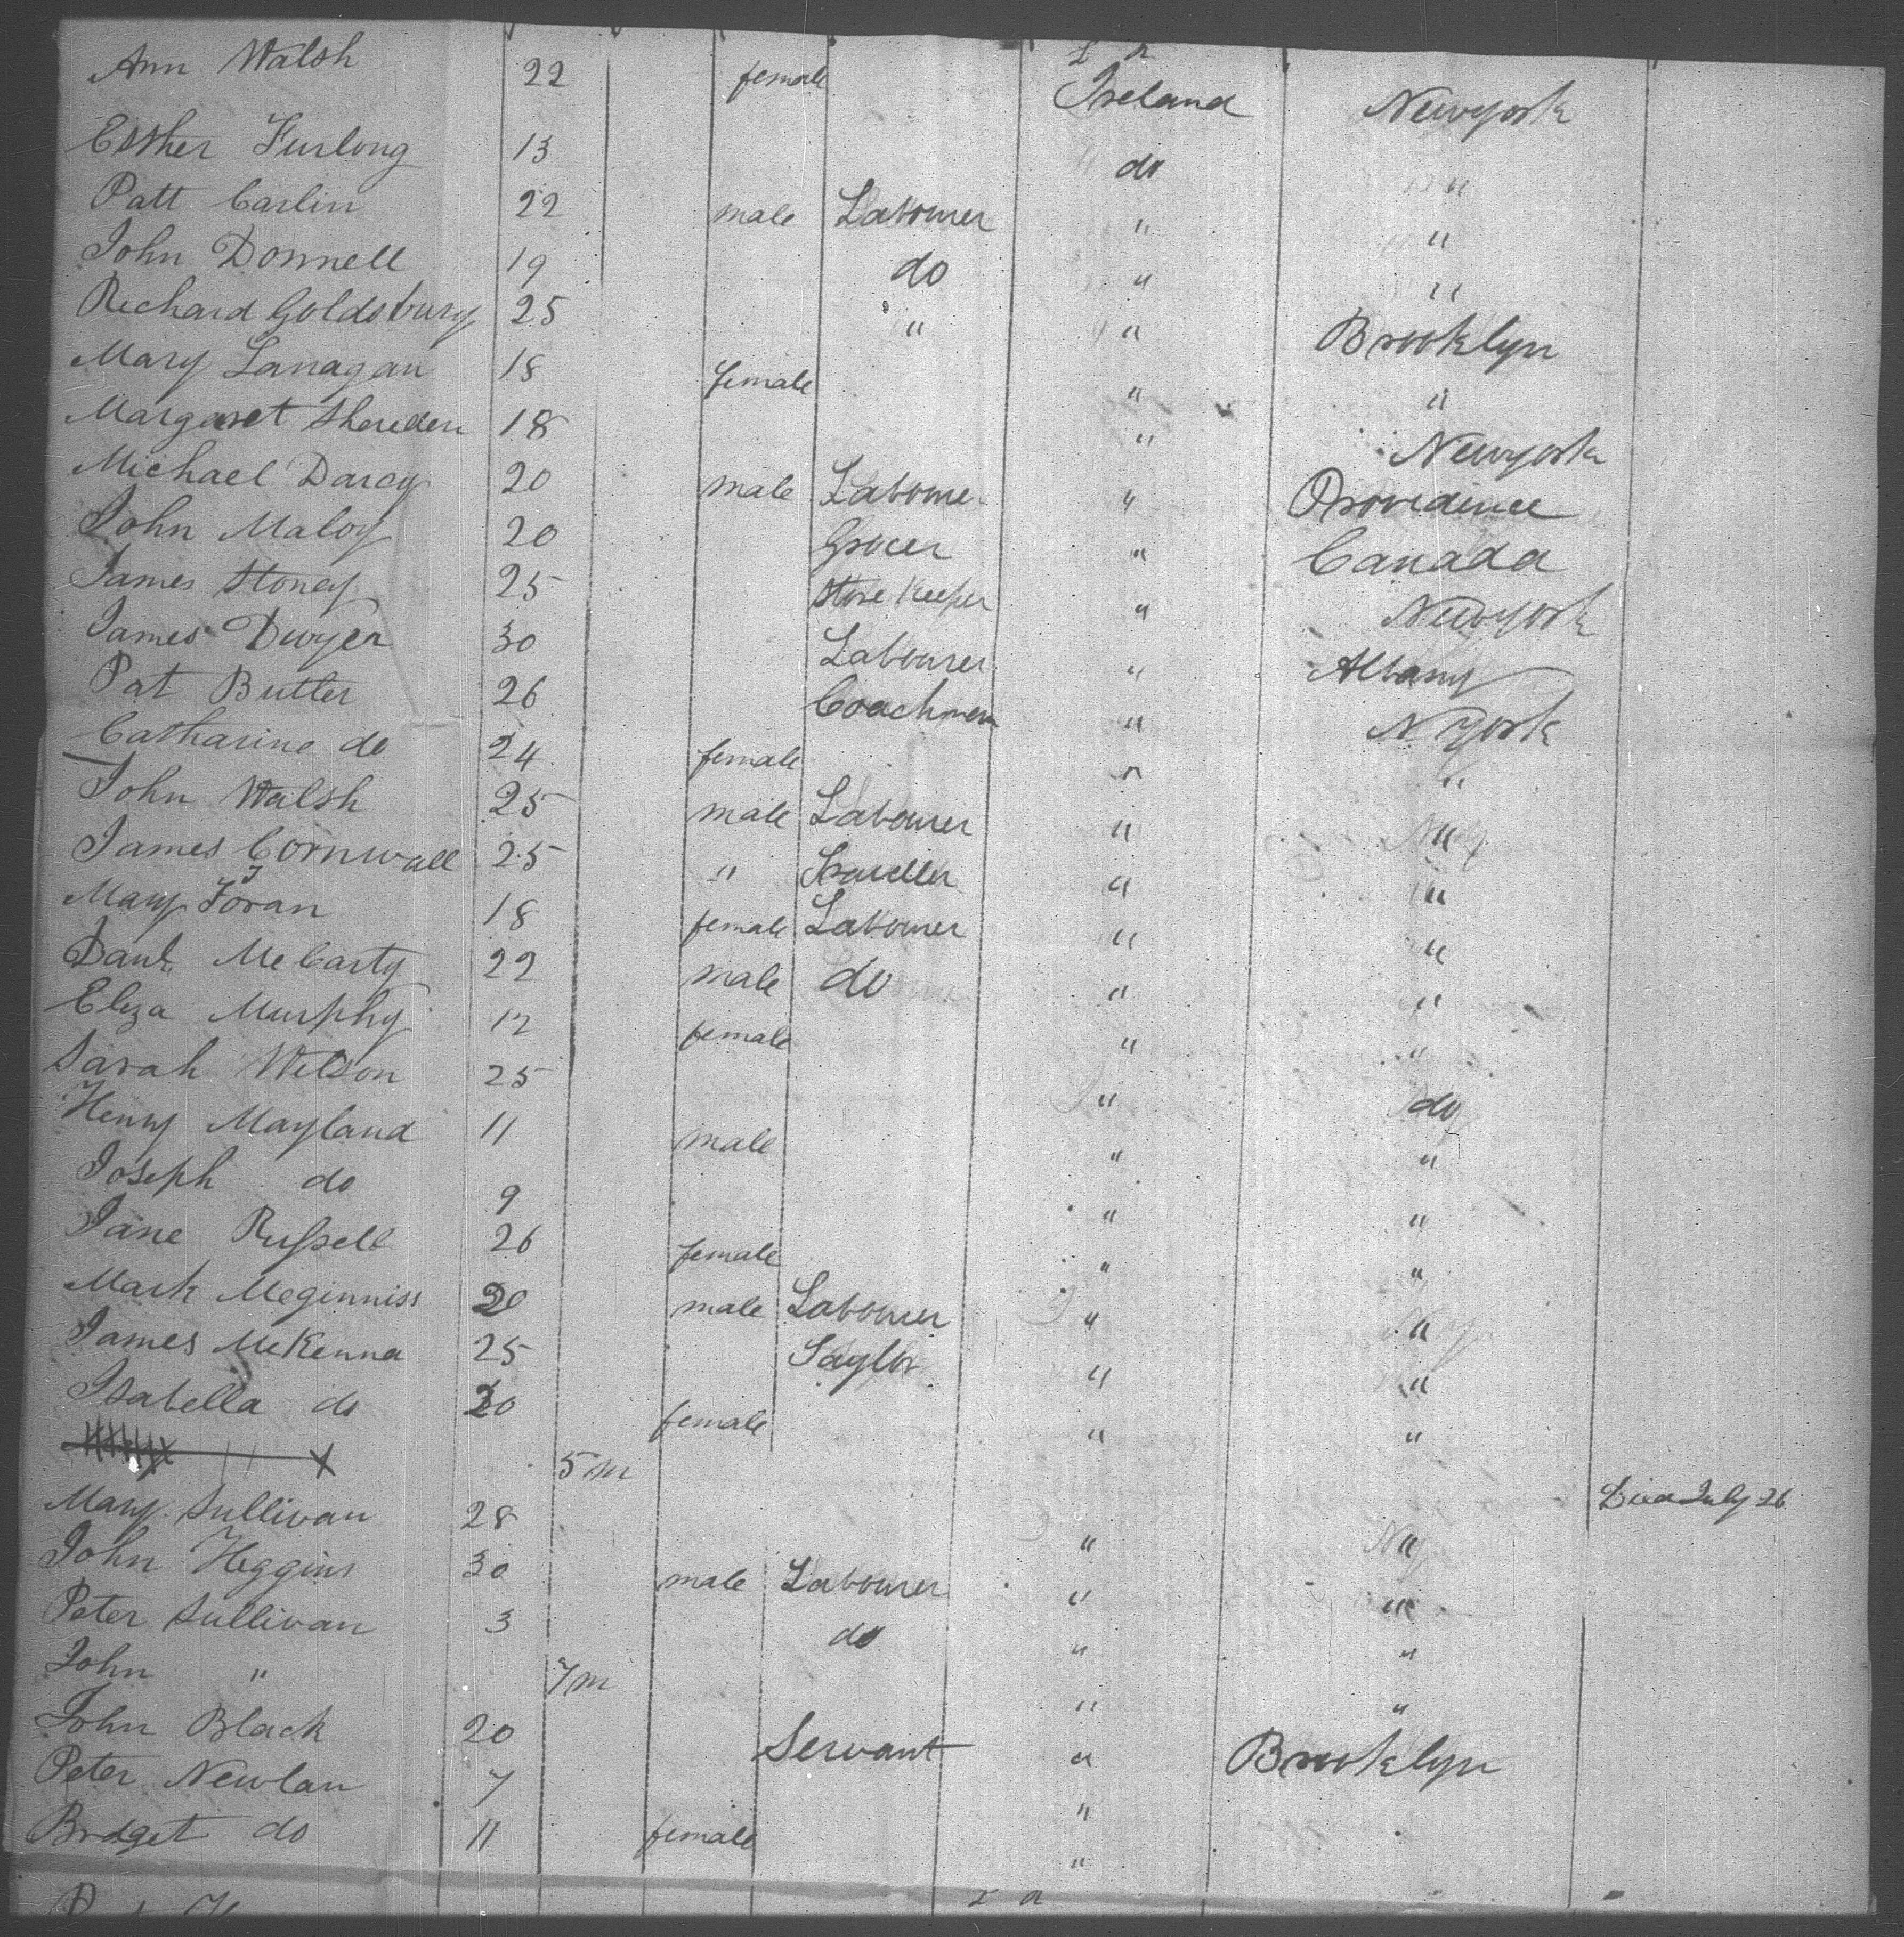 Ann Walsh 22 female Ireland Newyork
Esther Furlong 13 do "
Patt Carlin 22 male Labourer " "
John Donnell 19 do " "
Richard Goldsbury 25 " " Brooklyn
Mary Lanagan 18 female " "
Margaret Shereden 18 " Newyork
Michael Darcy 20 male Laboure " Providence
John Maloy 20 Grocer " Canada
James Stoney 25 Store Keeper " Newyork
James Dwyer 30 Labourer " Albany
Pat Butler 26 Coachman " N York
Catharine do 24 female " "
John Walsh 25 male Labourer " "
James Cornwall 25 " Traveller " "
Mary Foran 18 female Labourer " "
Danl. McCarty 22 male do " "
Eliza Murphy 12 female " "
Sarah Wilson 25 " do
Henry Mayland 11 male " "
Joseph do 9 " "
Jane Russell 26 female " "
Mark Meginniss 20 male Labourer " "
James McKenna 25 Taylor " "
Isabella do 20 female " "
5 m Died July 26
Mary Sullivan 28 " "
John Heggins 30 male Labourer " "
Peter Sullivan 3 do " "
John " 7 m " "
John Black 20 Servant " Brooklyn
Peter Newlan 7 "
Bridget do 11 female "